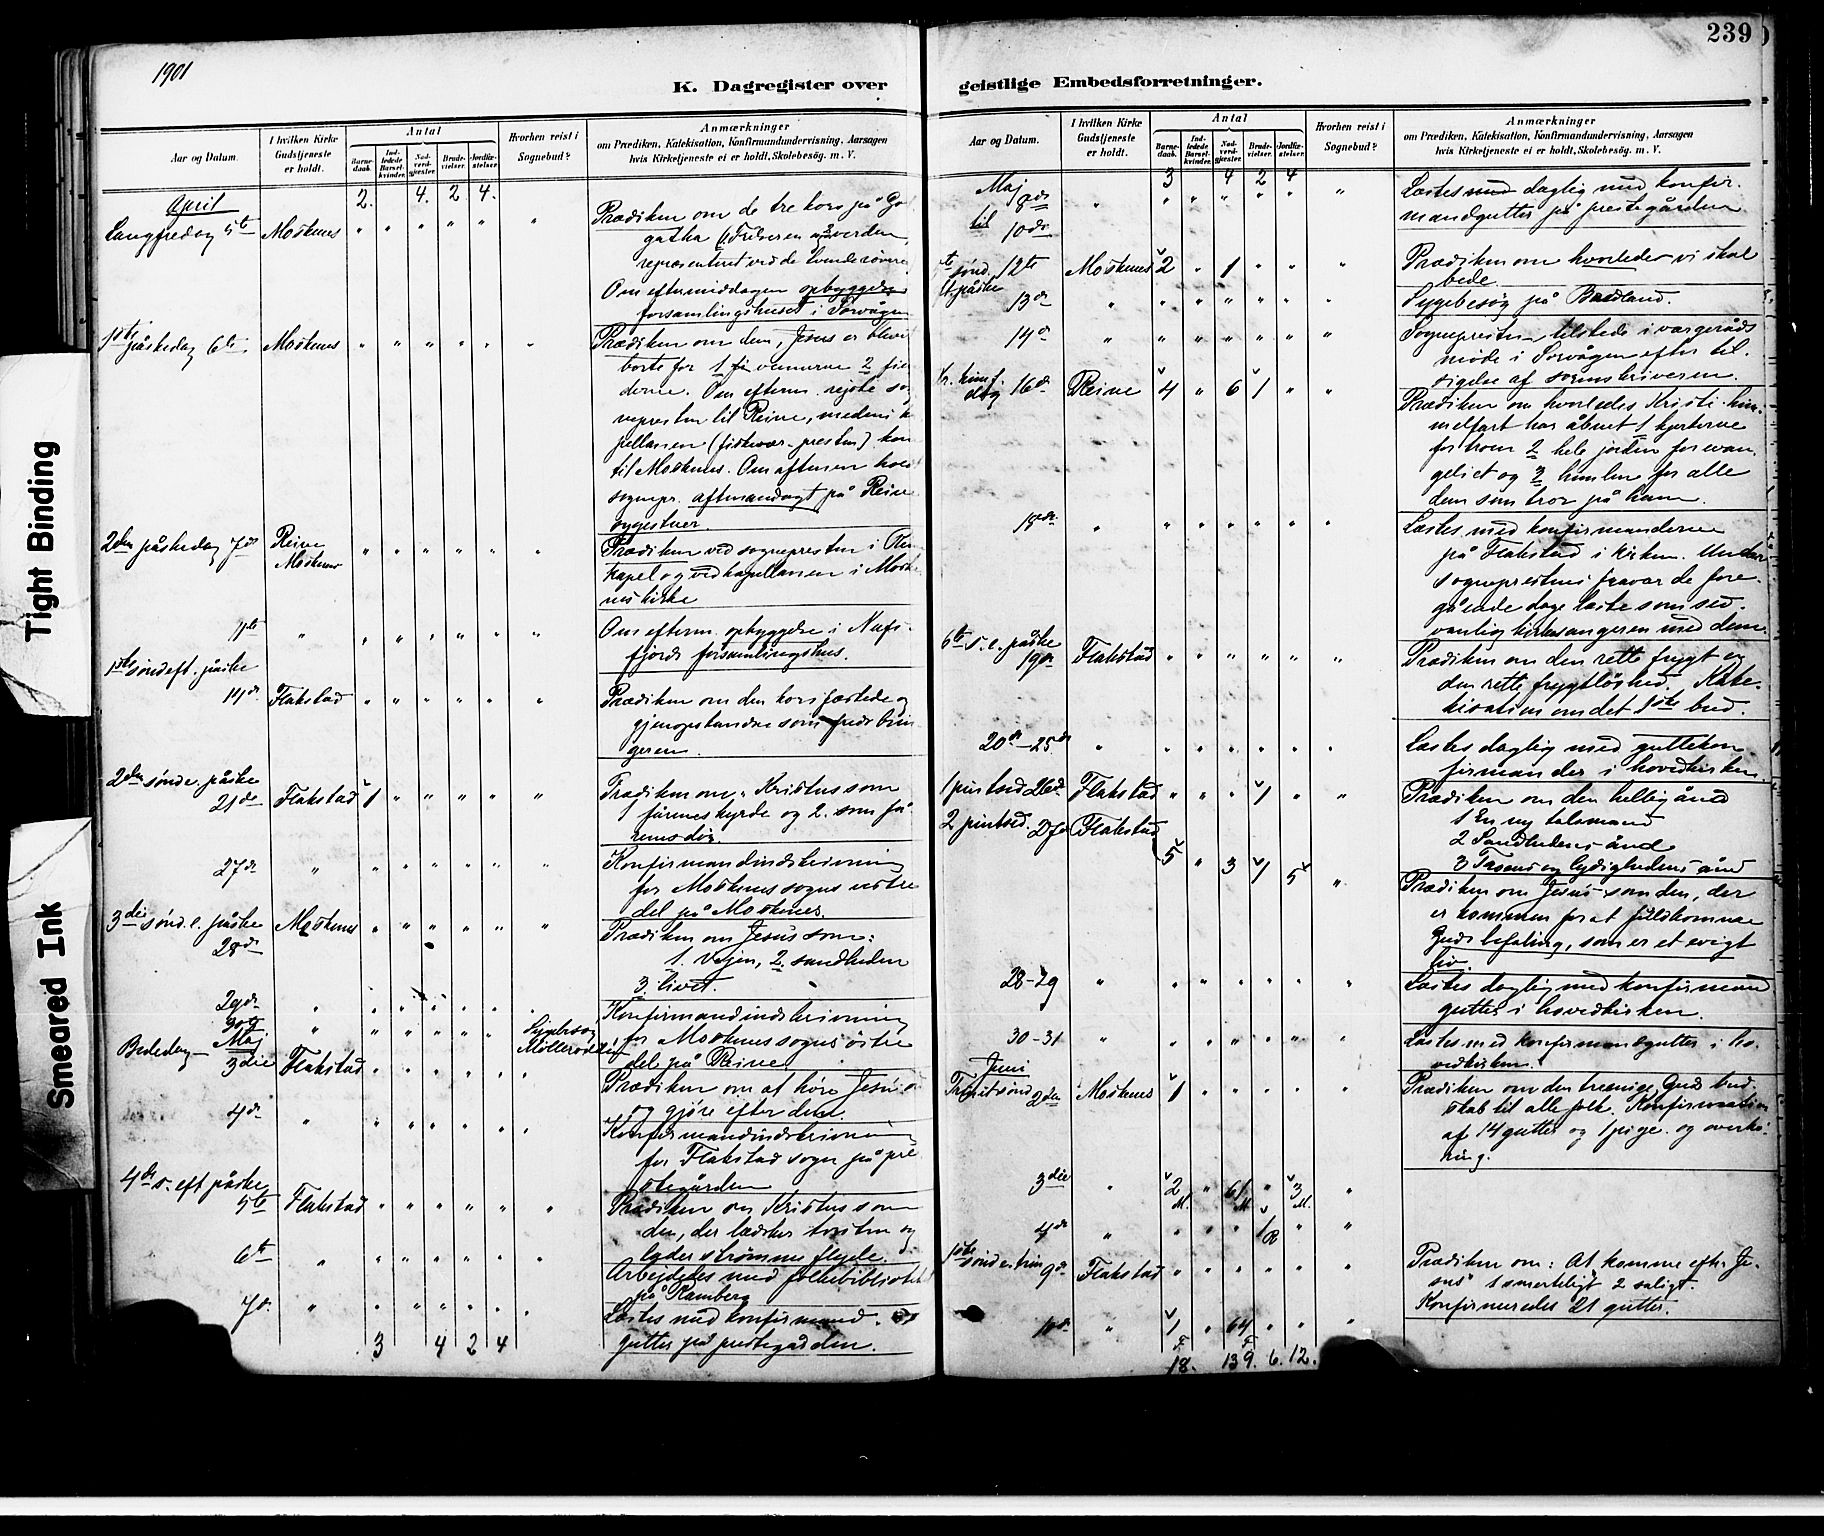 239
1901
K. Dagregister over
geistlige Embedsforretninger.
Aar og Datum.
I hvilken Kirke Gudstjeneste er holdt.
Antal
Barnedaab.
Indledede Barselkvinder.
Nadverdgjester.
Brudevielser.
Jordfæstelser.
Hvorhen reist i Sognebud?
Anmærkninger
om Prædiken, Katekisation, Konfirmandundervisning, Aarsagen
hvis Kirketjeneste ei er holdt, Skolebesøg. m. V.
April 2. 4. 2 4.
Langfredag 5te Moskenes " " " " " "
Prædiken om de tre kors på Gol
gatha
repræsenteret ved de tvende røvere
Om eftermiddagen opbyggelse
forsamlingshuset i Sørvågen
1ste påskedag 6te Moskenes " " " " " "
Prædiken om dem, Jesus er blevet
borte for 1 vennerne 2 fien
derne. Om efterm. rejste sog
nepresten til Reine, medens ka
pellanen (fiskevær-presten) kom
til Moskenes. Om aftenen holdt
sognepr. aftenandagt på Reine
sygestuer.
2den påskedag 7de Reine Moskenes " " " " " "
Prædiken ved sognepresten i Reine
kapel og ved kapellanen i Moske
nes kirke
11te " " " " " " "
Om efterm. opbyggelse i Nufs-
fjords forsamlingshus.
1ste sønd eft. påske
14de Flakstad " " " " " "
Prædiken om den korsfæstede og
gjenopstandne som fredsbrin
geren.
2den sønd e. påske
21de Flakstad 1 " " " " "
Prædiken om: Kristus som
1 fårenes hyrde og 2. som få
renes dør.
27de " " " " " " "
Konfirmandindskrivning
for Moskenes sogns vestre
del på Moskenes.
3die sønd. e. påske Moskenes " " " " " "
28de
Prædiken om Jesus som:
1. Vejen, 2. sandheden
3. livet.
29de " " " " " "
30te " " " " " "
Sygebesøg
Konfirmandindskrivning
for Moskenes sogns østre
del på Reine
Maj
Bededag – 3die Flakstad " " " " " "
Prædiken om at høre Jesu o
og gjøre efter dem.
4de " " " " " " "
Konfirmandindskrivning
for Flakstad sogn på pre
stegården
4de s. eft påske
5te Flakstad " " " " " "
Prædiken om Kristus som
den, der lædsker tørsten og
lader strømme flyde.
6te " " " " " " "
Arbejdedes med folkebibliotek
på Ramberg
7de " " " " " " "
Læstes med konfirmand-
gutter på prestegården.
3 4 2 4
Aar og Datum.
I hvilken Kirke Gudstjeneste er holdt.
Antal
Barnedaab.
Indledede Barselkvinder.
Nadverdgjester.
Brudevielser.
Jordfæstelser.
Hvorhen reist i Sognebud?
Anmærkninger
om Prædiken, Katekisation, Konfirmandundervisning, Aarsagen
hvis Kirketjeneste ei er holdt, Skolebesøg. m. V.
Maj 3 4 2 4
8de " " " " " " "
til 10de
Læstes daglig med konfir-
mandgutter på prestegården
5te sønd. 12te Moskenes 2 " 1 " " "
e. påske
Prædiken om hvorledes vi skal
bede.
13de " " " " " " "
Sygebesøg på Bardland.
14de " " " " " " "
Sognepresten tilstede i værgeråds
møde i Sørvågen efter til-
sigelse af sorenskriveren.
Kr. himf. dag 16de Reine 4 " 6 1 " "
Prædiken om hvorledes Kristi him-
melfart har åbnet 1 hjerterne
for ham 2 hele jorden for evan
geliet og 3 himlen for alle
dem som tror på ham.
18de " " " " " " "
Læstes med konfirmanderne
på Flakstad i kirken. Under
sogneprestens fravær de fore-
gående dage læste som sed-
vanlig kirkesangeren med dem.
6te s. e. påske
19de Flakstad " " " " " "
Prædiken om den rette frygt og
den rette frygtløshed. Kate-
kisation om det 1ste bud.
20de – 25de " " " " " " "
Læstes daglig med guttekon
firmander i hovedkirken.
1 pintsed 26de Flakstad " " " 1 " "
Prædiken om den hellig ånd
1 En ny talsmand
2 Sandhedens ånd
3 Troens og lydighedens ånd
2 pintsed. 27de Flakstad 5 " 3 1 5 "
Prædiken om Jesus som den, der
er kommen for at fuldkomme
Guds befaling, som er et evigt
liv.
28-29 " " " " " " "
Læstes daglig med konfirmand
gutter i hovedkirken.
30-31 " " " " " " "
Læstes med konfirmandgutter i ho-
vedkirken.
Juni
Trinit sønd 2den Moskenes 1 " " " " "
Prædiken om den treenige Guds bud-
skab til alle folk. Konfirmation
af 14 gutter og 1 pige. og overhø-
ring.
3die " 2 M. " 61 M. " 3 M. "
4de " " " " 1 R " "
1ste sønd e trin 9de Flakstad " " " " " "
Prædiken om: At komme efter Je-
sus 1 smerteligt 2 saligt.
Konfirmeredes 21 gutter.
10de " 1 F " 64 F " " "
18. 139. 6. 12.
Tight Binding
Smeared Ink